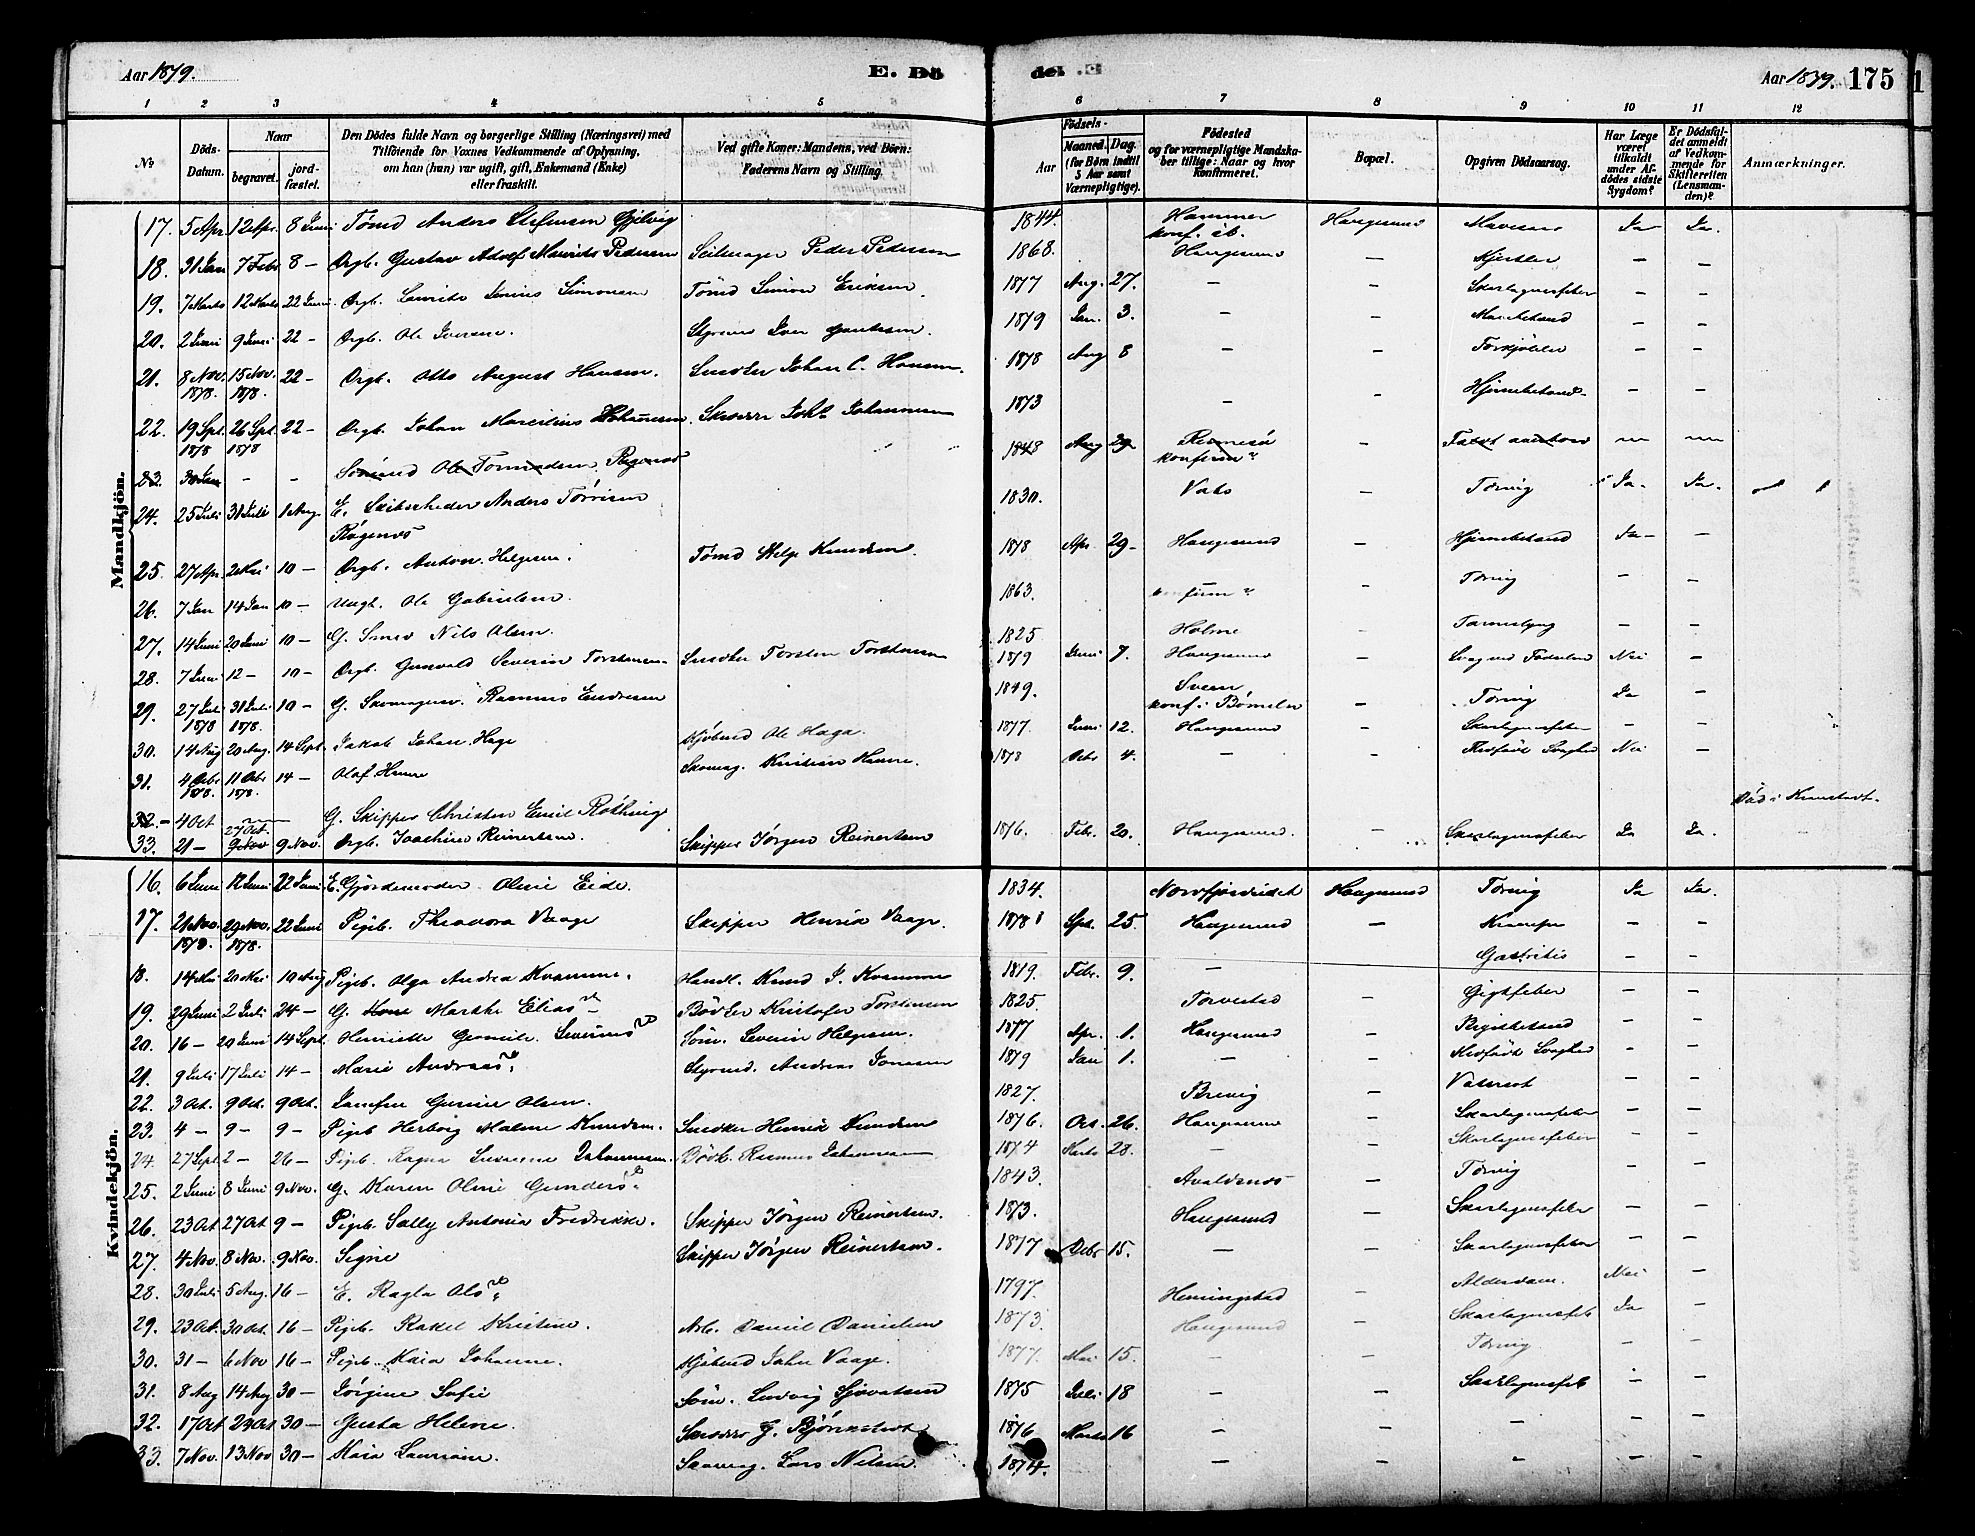 Aar 1879.
E. Dö
de. E
Aar 1879. 175
1 2 3 4 5 6 7 8 9 10 11 12
No Döds-Datum. Naar begravet. jord-fæstet. Den Dödes fulde Navn og borgerlige Stilling (Næringsvei) med Tilföiende for Voxnes Vedkommende af Oplysning, om han (hun) var ugift, gift, Enkemand (Enke) eller fraskilt. Ved gifte Koner: Mandens, ved Börn: Faderens Navn og Stilling. Födsels- Aar Maaned. Dag. (for Börn indtil 5 Aar samt Værnepligtige). Födested og for værnepligtige Mandskaber tillige: Naar og hvor konfirmeret. Bopæl. Opgiven Dödsaarsag. Har Læge været tilkaldt under Afdödes sidste Sygdom? Er Dödsfaldet anmeldt af Vedkommende for Skifteretten (Lensmanden)? Anmærkninger.
Mandkjön.
17. 5 Apr 12 Apr. 8 Juni Tømd Anders Gjilvig 1844 Hammer konf. ib. Haugesund Ja Ja.
18. 31 Jan 7 Febr 8 — Drgb. Gustav Adolf Maurits Pedersen Seilmager Peder Pedersen 1868. Haugesund — — —
19. 7 Marts 12 Marts 22 Juni Drgb. Simonsen Tømd Simon Eriksen 1877 Aug. 27. — — Skarlagensfeber — —
20. 2 Juni 9 Juni 22 — Drgb. Ole Iversen. Styrmd Iver 1879 Jan. 3. — — — —
21. 8 Nov. 1878. 15 Nov. 1878. 22 — Drgb. Otto August Hansen. Snedker Johan C. Hansen. 1878 Aug 8 — — Forkjølelse — —
22. 19 Spt. 1878 26 Spt. 1878 22 — Drgb. Johan Johannesen. 1873 — — Hjernebetænd. — —
23. — — Sømand Ole Røgenes 1848 Aug 29 konfirm Faldt overbord
24. 25 Juli 31 Juli 1 Aug. E. Skibsreder Anders Tørrisen Røgenes 1830. Vats — Tæring Ja. Ja.
25. 27 Apr. 2 Mai 10 — Drgb. Anton Helgesen. Tømd Helge Knudsen. 1878 Apr. 29 — Haugesund — Hjernebetænd Ja — —
26. 7 Jan 14 Jan 10 — Ungk. Ole Gabrielsen. 1863. konfirm — Tæring — —
27. 14 Juni 20 Juni 10 — G. Smed Nils Olsen. 1825 Holme — — —
28. 7 Juni 12 — 10 — Drgb. Gunvald Severin Torstensen. Snedker Torsten Torstensen 1879 Juni 7. Haugesund — Svag ved Fødselen Nei —
29. 27 Juli 1878 31 Juli 1878. 10 — G. Skomagersv. Rasmus Endresen 1849. Sveen konf. i Bømelen — Tæring Ja —
30. 14 Aug 20 Aug. 14 Sept. Jakob Johan Haga Kjøbmd Ole Haga. 1877. Juni 12. Haugesund — Skarlagensfeber — —
31. 4 Octr. 1878. 11 Octr. 1878. 14 — Olaf Skomag. Kristian 1878 Octr 4. — — Medfødt Svaghed Nei —
32. — 4 Oct G. Skipper Christen Emil Røthing Død i Kronstadt.
33. 21 — 27 Oct. 9 Nov 9 Nov. Drgb. Joachim Reinertsen. Skipper Jørgen Reinertsen 1876. Febr. 20. Haugesund. — Skarlagensfeber Ja Ja.
Kvindekjön.
16. 6 Juni 12 Juni 22 Juni E. Gjordemoder Oline Eide. 1834. Nordfjordeidet Haugesund Tæring Ja Ja.
17. 21 Nov. 1878. 29 Nov. 1878. 22 Juni Pigeb. Theodora Vaage Skipper Henrik Vaage. 1878 Spt. 25. Haugesund — Krampe — —
18. 14 Mai 20 Mai 10 Aug Pigeb. Olga Andrea Kvamme. Handl. Knud J. Kvamme 1879. Febr. 9. — Gastritis — —
19. 29 Juni 2 Juli 24 — G. Kone Marthe Elias Bødker Kristofer Torstensen 1825. Torvestad — Gigtfeber — —
20. 16 — 20 Juni 14 Sept. Henriette Severins Søm. Severin Helgesen. 1877 Apr. 1. Haugesund — — —
21. 9 Juli 17 Juli 14 — Marie Andreas Styrmd. Andreas Jonassen 1879 Jan 1. — — Medfødt Svaghed — —
22. 3 Oct. 9 Oct. 9 Oct. Jomfru Gurine Olsen. 1827. Brevig — Vatersot — —
23. 4 — 9 — 9 — Pigeb Hedvig Malene Knudsen. Snedker Henrik Knudsen 1876. Oct. 26. Haugesund — Skarlagensfeber — —
24. 27 Sept. 2 — 26 — Pigeb. Ragna Johannesen. Bødk. Rasmus Johannesen 1874 Marts 28. — — Skarlagensfeber — —
25. 2 Juni 8 Juni 9 Nov. G. Karen Oline Gunders 1843. Avaldsnes — Tæring — —
26. 23 Oct 27 Oct 9 — Pigeb. Sally Antonia Fredrikke. Skipper Jørgen Reinertsen. 1873. Haugesund — Skarlagensfeber — —
27. 4 Nov. 8 Nov. 9 Nov. Signe Skipper Jørgen Reinertsen. 1877 Octr 15. — — Skarlagensfeber — —
28. 30 Juli 5 Aug. 16 — E. Ragla Ols 1797. Hemingstad — Alderdom. Nei —
29. 23 Oct. 30 Oct. 16 — Pigeb. Rakel Kristine. Arb. Daniel Danielsen 1873. Haugesund — Skarlagensfeb Ja —
30. 31 — 6 Nov 16 — Pigeb. Maia Johanne. Kjøbmd John Vaage. 1877. Mai 15. — — Tæring — —
31. 8 Aug 14 Aug 30 — Jørgine Sofie Søm. Ludvig 1875 Juli 18 — — Skarlagensfeb — —
32. 17 Oct 23 Oct 30 — Gusta Helene. Bjørnstad 1876 Marts 16 — — — — —
33. 7 Nov. 13 Nov 30 — Maia Lauriane Skomag. Lars Nilsen. 1874. — — — — —